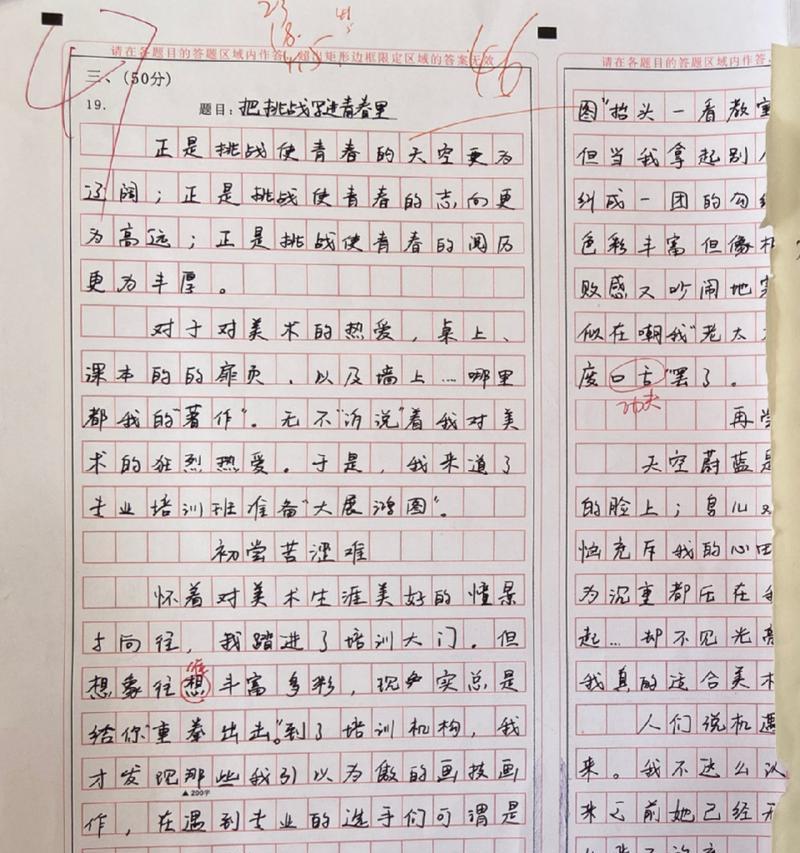 23
18
45
47
46
请在各题目的答题区域内作答，超出矩形边框限定区域的答案无效
三、(50分)
19. 题目：把挑战写进青春里
正是挑战使青春的天空更为
辽阔；正是挑战使青春的志向更
为高远；正是挑战使青春的阅历
更为丰厚。
对于对美术的热爱，桌上、
课本的的扉页、以及墙上…哪里
都我的"著作"。无不"诉说"着我对美
术的狂烈热爱。于是，我来道了
专业培训班准备"大展鸿图"。
初尝苦涩难
怀着对美术生涯美好的憧景
与向往，我踏进了培训大门。但
想象往想丰富多彩，现实总是
给你"重拳出击。"到了培训机构，我
才发现那些我引以为傲的画技画
▲200字
作，在遇到专业的选手们可谓是
请在各题目的答题区域内作答，
图"抬头一看教室
但当我拿起别
纠成一团的勾
色彩丰富但像
败感又吵闹地
似在嘲我"老太
废口舌"罢了。
功夫
再尝
天空蔚蓝是
的脸上；鸟儿
恼充斥我的心田
为沉重都压在我
起…却不见光亮
我真的适合美术
人们说机遇
来。我不这么认
来之前她已经